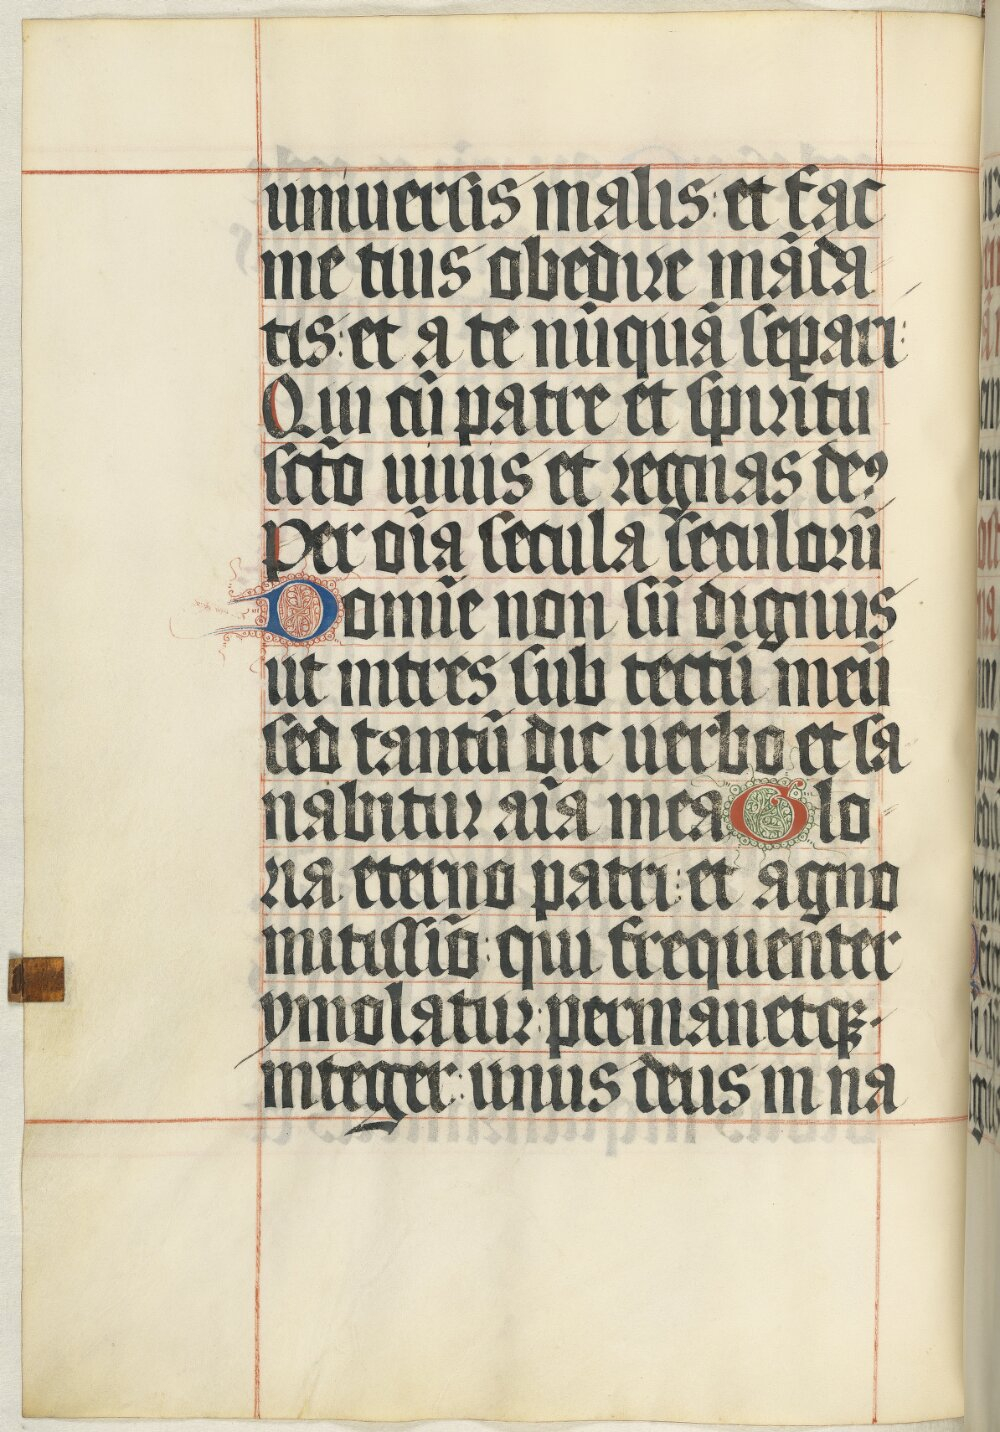 universis malis: et fac
me tuis obedire mãda
tis: et a te nũquã separi:
Qui cũ patre et spiritu
sct̃o uiuis et regnas deꝰ
Per oĩa secula seculorũ
Domĩe non sũ dignus
ut intres sub tectũ meũ
sed tantũ dic uerbo et sa
nabitur aĩa mea Glo
ria eterno patri: et agno
mitissĩo: qui frequenter
ymolatur: permanetqꝫ
integer: unus deus in na